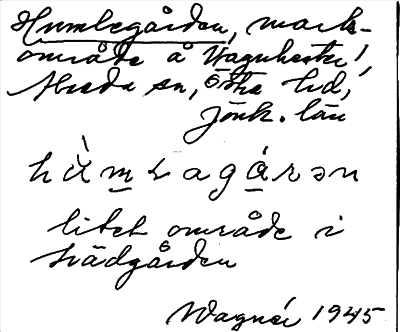 Humlegården, mark-
område å Vagnhester,
Alseda sn, Östra hd,
Jönk. län
hùmlagárən
litet område i
trädgården
Wagnér 1945